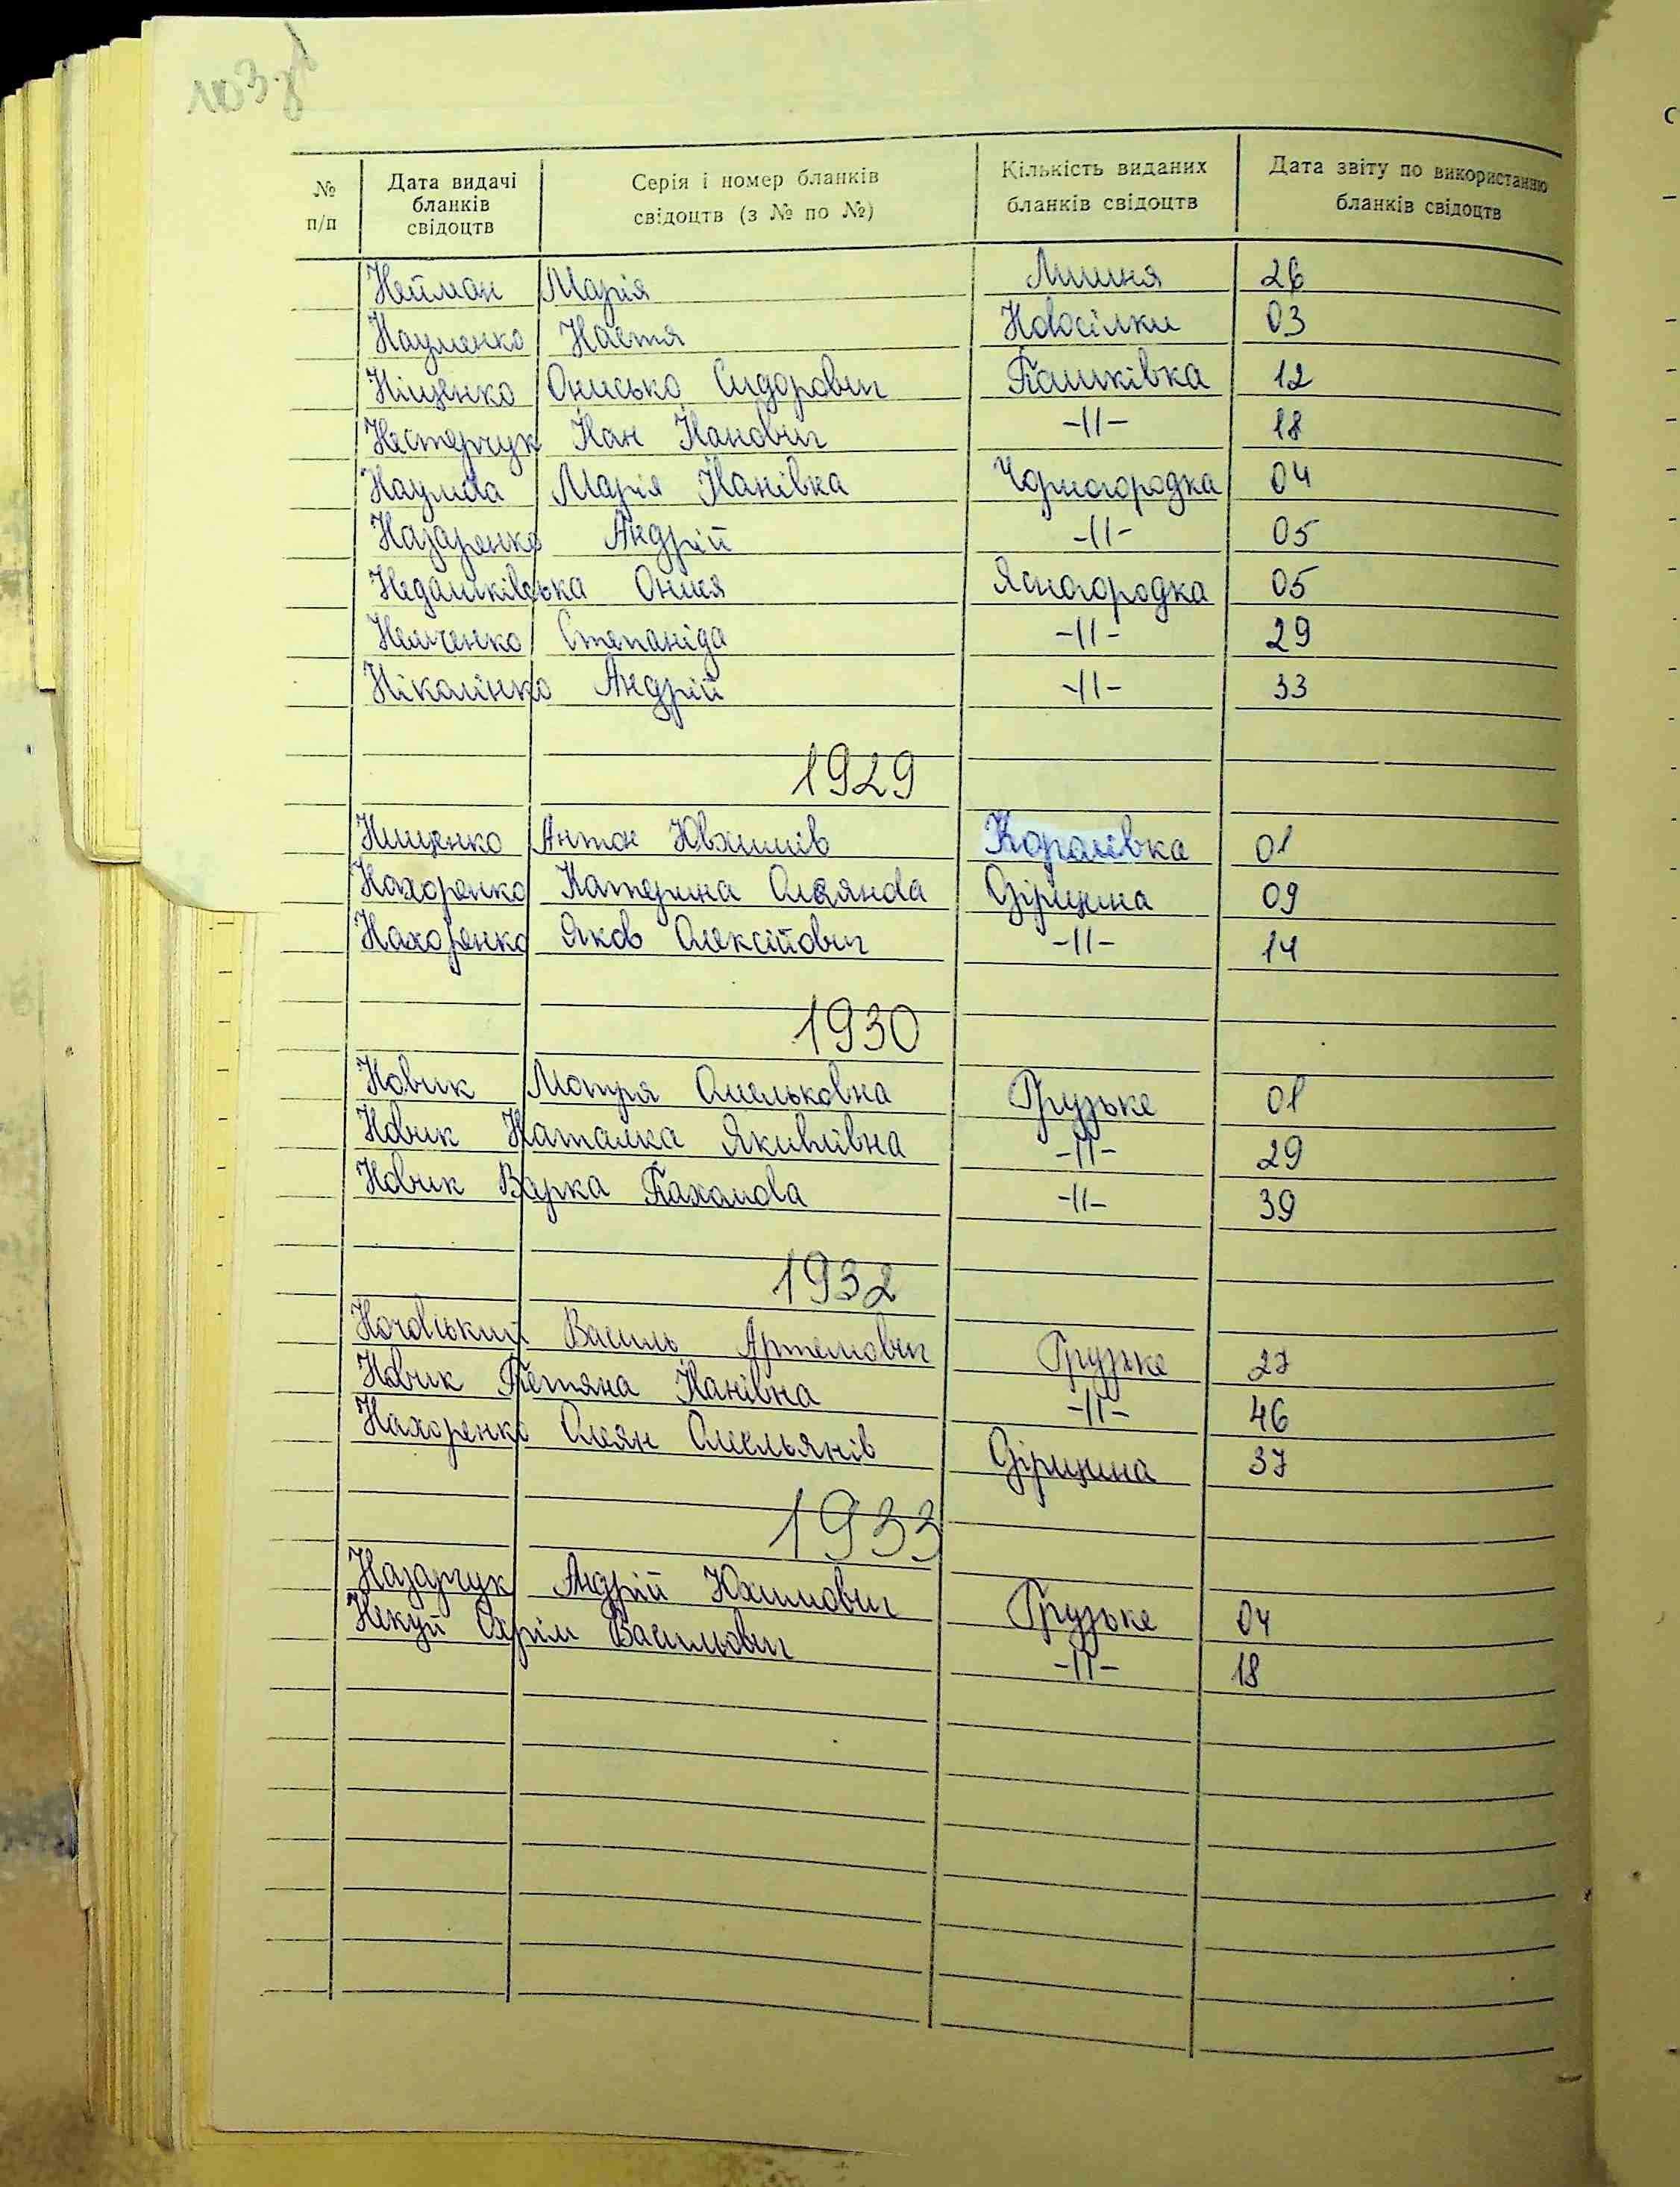 103 зв
№ п/п Дата видачі бланків свідоцтв Серія і номер бланків свідоцтв (з № по №) Кількість виданих бланків свідоцтв Дата звіту по використанню бланків свідоцтв
Нейман Марія Лишня 26
Науменко Настя Новосілки 03
Ніщенко Онисько Сидорович Пашківка 12
Нестерчук Іван Іванович -||- 18
Наумова Марія Іванівка Чорногородка 04
Назаренко Андрій -||- 05
Недашківська Онися Ясногородка 05
Немченко Степаніда -||- 29
Ніколінко Андрій -||- 33
1929
Нищенко Антон Ювхимів Королівка 01
Нахоренко Катерина Олеянова Діриціна 09
Нахоренко Яков Олексійович -||- 14
1930
Новик Мотря Омельковна Грузьке 01
Новик Наталка Якивлівна -||- 29
Новик Варка Пахомова -||- 39
1932
Ночовський Василь Артемович Грузке 27
Новик Тетяна Іванівна -||- 46
Нахоренко Олеян Омельянів Діриціна 37
1933
Назарчук Андрій Юхимович Грузьке 04
Некуй Охрім Васильович -||- 18